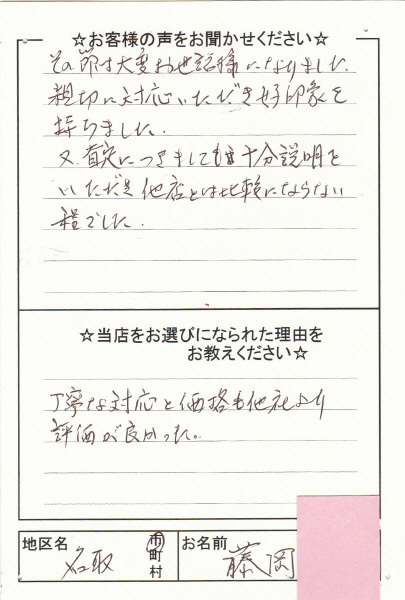 ☆お客様の声をお聞かせください☆
その節は大変お世話様になりました。
親切に対応いただき好印象を
持ちました。
又、査定につきましても十分説明を
いただき他店とは比較にならない
程でした。
☆当店をお選びになられた理由を
お教えください☆
丁寧な対応と価格も他社より
評価が良かった。
地区名 名取 市町村 お名前 藤岡